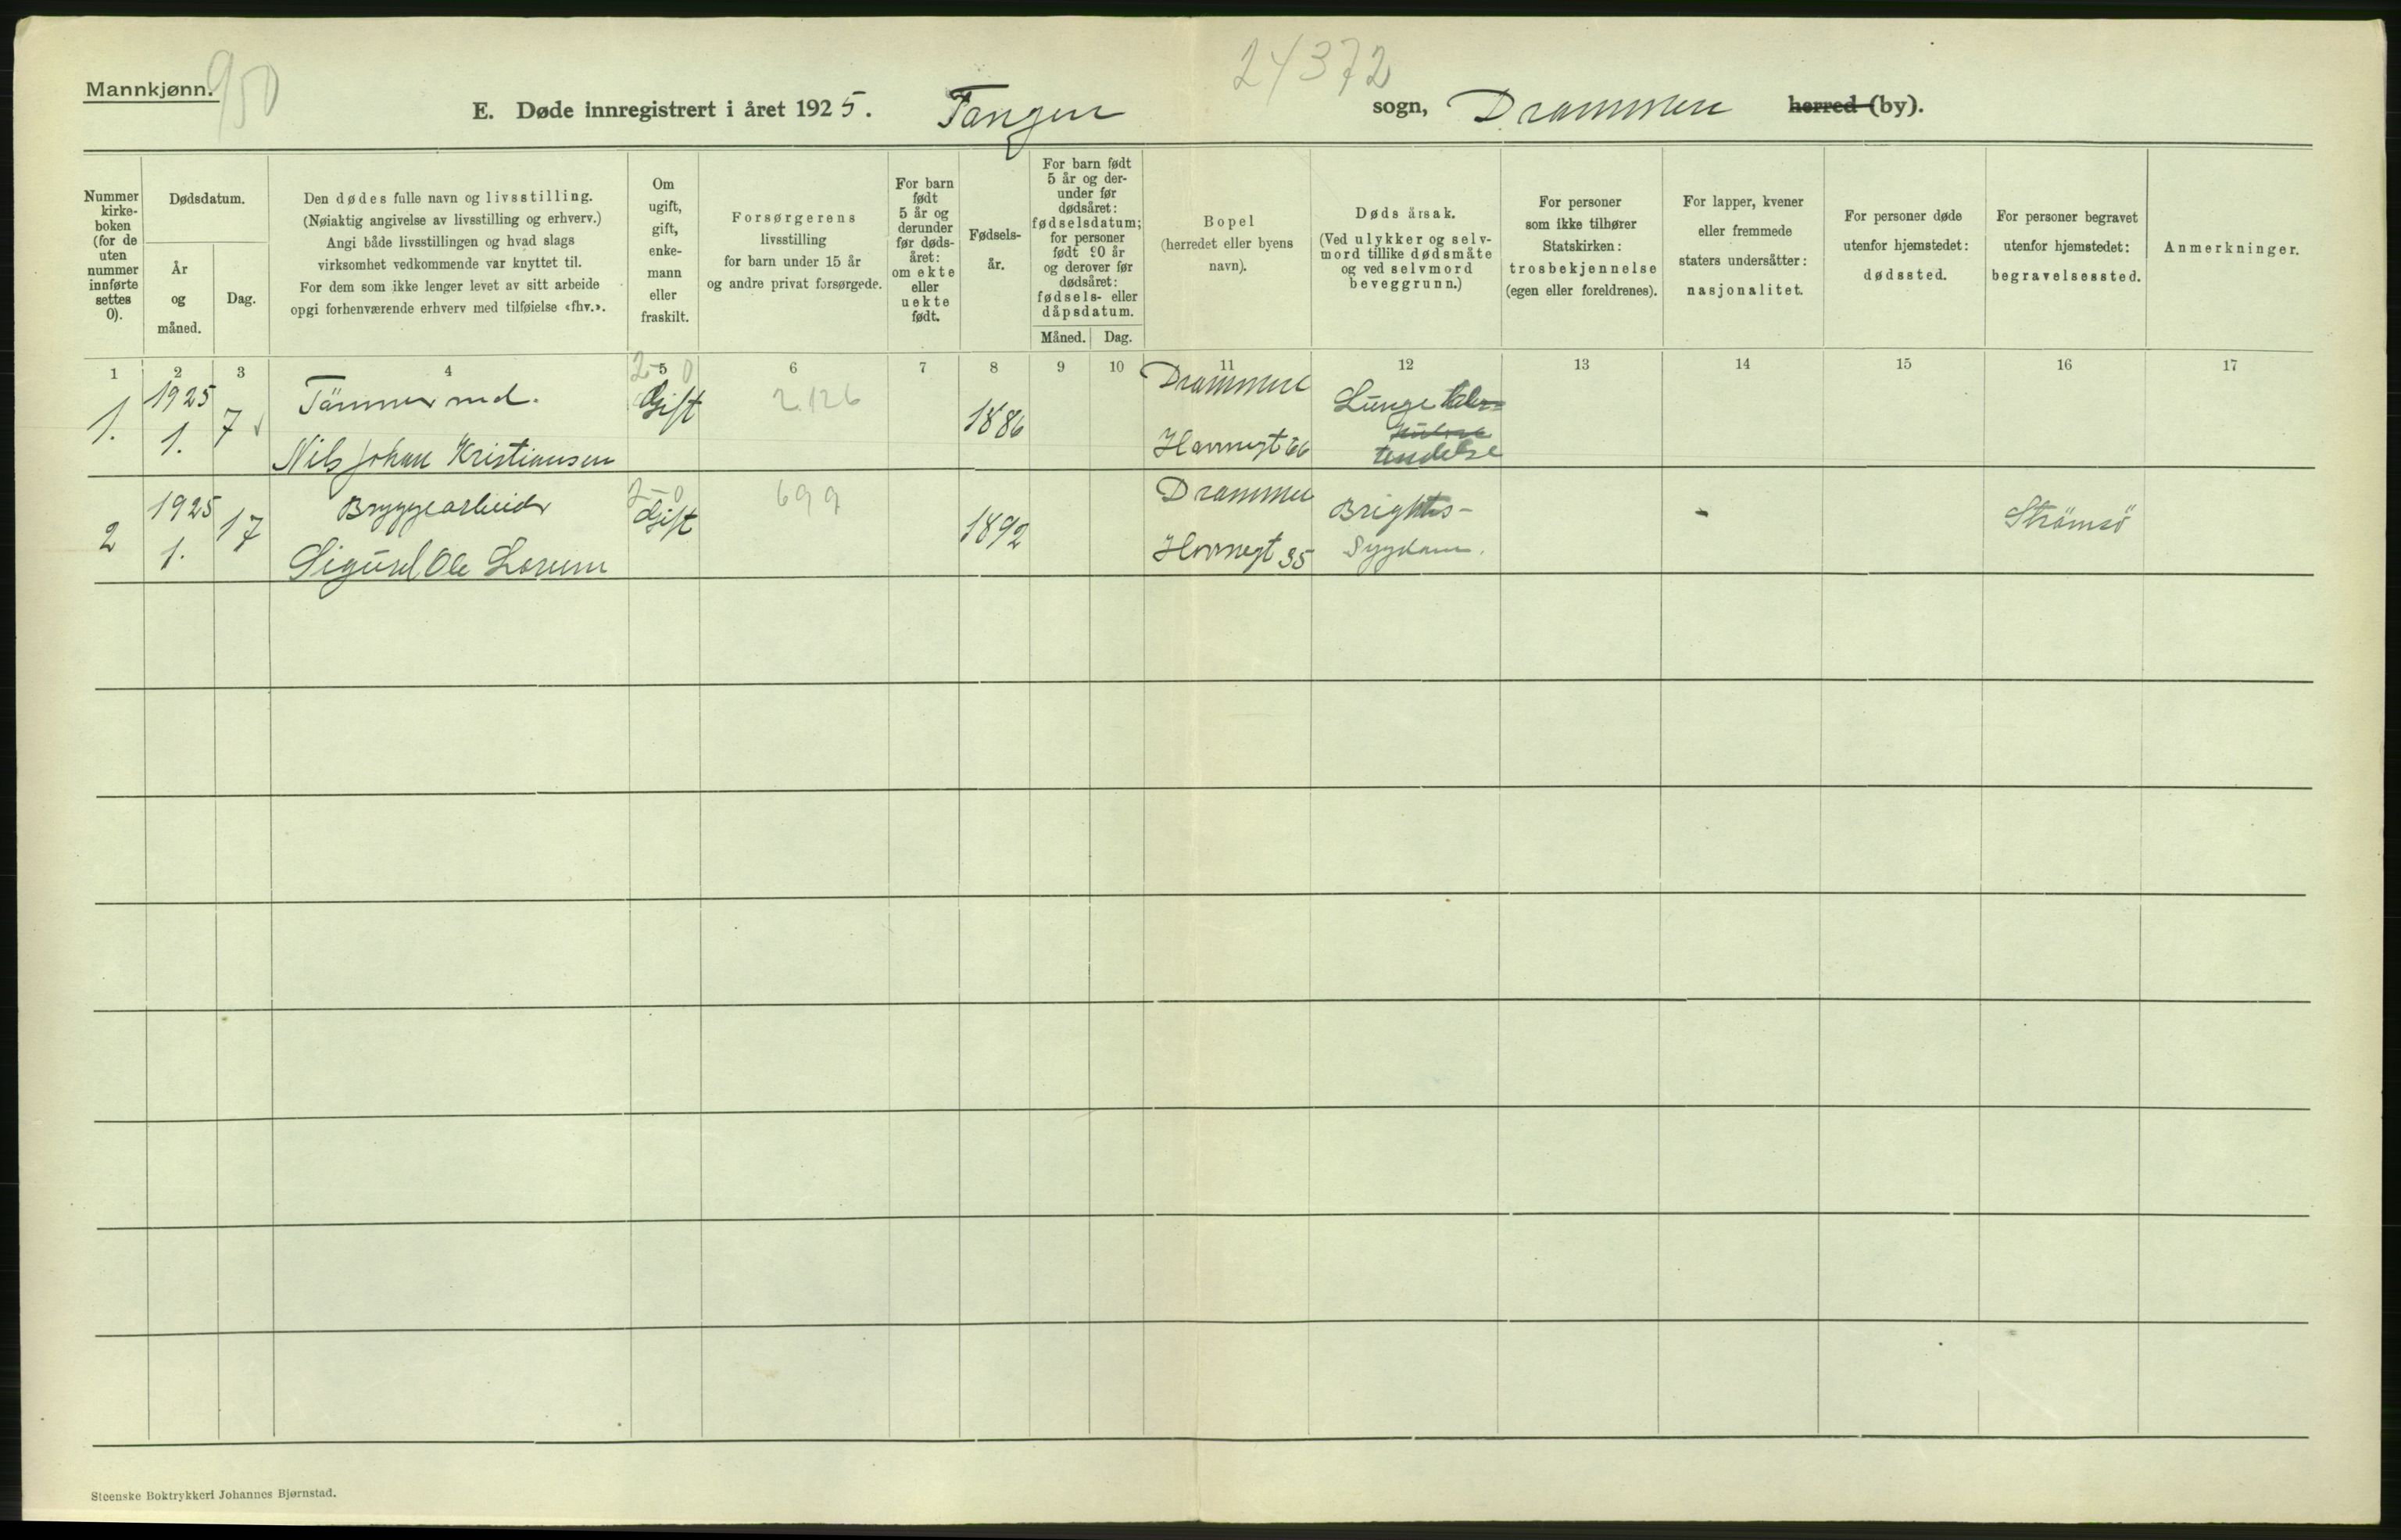 Mannkjønn.
950
24372
E. Døde innregistrert i året 1925. Tangen sogn, Drammen herred (by).
Nummer
kirke-
boken
(for de
uten
nummer
innførte
settes
0).
Dødsdatum.
År
og
måned.
Dag.
Den dødes fulle navn og livsstilling.
(Nøiaktig angivelse av livsstilling og erhverv.)
Angi både livsstillingen og hvad slags
virksomhet vedkommende var knyttet til.
For dem som ikke lenger levet av sitt arbeide
opgi forhenværende erhverv med tilføielse «fhv.».
Om
ugift,
gift,
enke-
mann
eller
fraskilt.
Forsørgerens
livsstilling
for barn under 15 år
og andre privat forsørgede.
For barn
født
5 år og
derunder
før døds-
året:
om ekte
eller
uekte
født.
Fødsels-
år.
For barn født
5 år og der-
under før
dødsåret:
fødselsdatum;
for personer
født 90 år
og derover før
dødsåret:
fødsels- eller
dåpsdatum.
Måned.
Dag.
Bopel
(herredet eller byens
navn).
Døds årsak.
(Ved ulykker og selv-
mord tillike dødsmåte
og ved selvmord
beveggrunn.)
For personer
som ikke tilhører
Statskirken:
trosbekjennelse
(egen eller foreldrenes).
For lapper, kvener
eller fremmede
staters undersåtter:
nasjonalitet.
For personer døde
utenfor hjemstedet:
dødssted.
For personer begravet
utenfor hjemstedet:
begravelsessted.
Anmerkninger.
1 2 3 4 5 6 7 8 9 10 11 12 13 14 15 16 17
1.
1925
1.
7
Tömmermd.
Nils Johan Kristiansen
2-0
Gift
2.126
1886
Drammen
Havnegt 66
Lunge
tendelse
2
1925
1.
17
Bryggearbeider
Sigurd Ole Lorum
2-0
Gift
699
1892
Drammen
Havnegt 35
Brights-
Sygdom.
-
Strömsö
Steenske Boktrykkeri Johannes Bjørnstad.